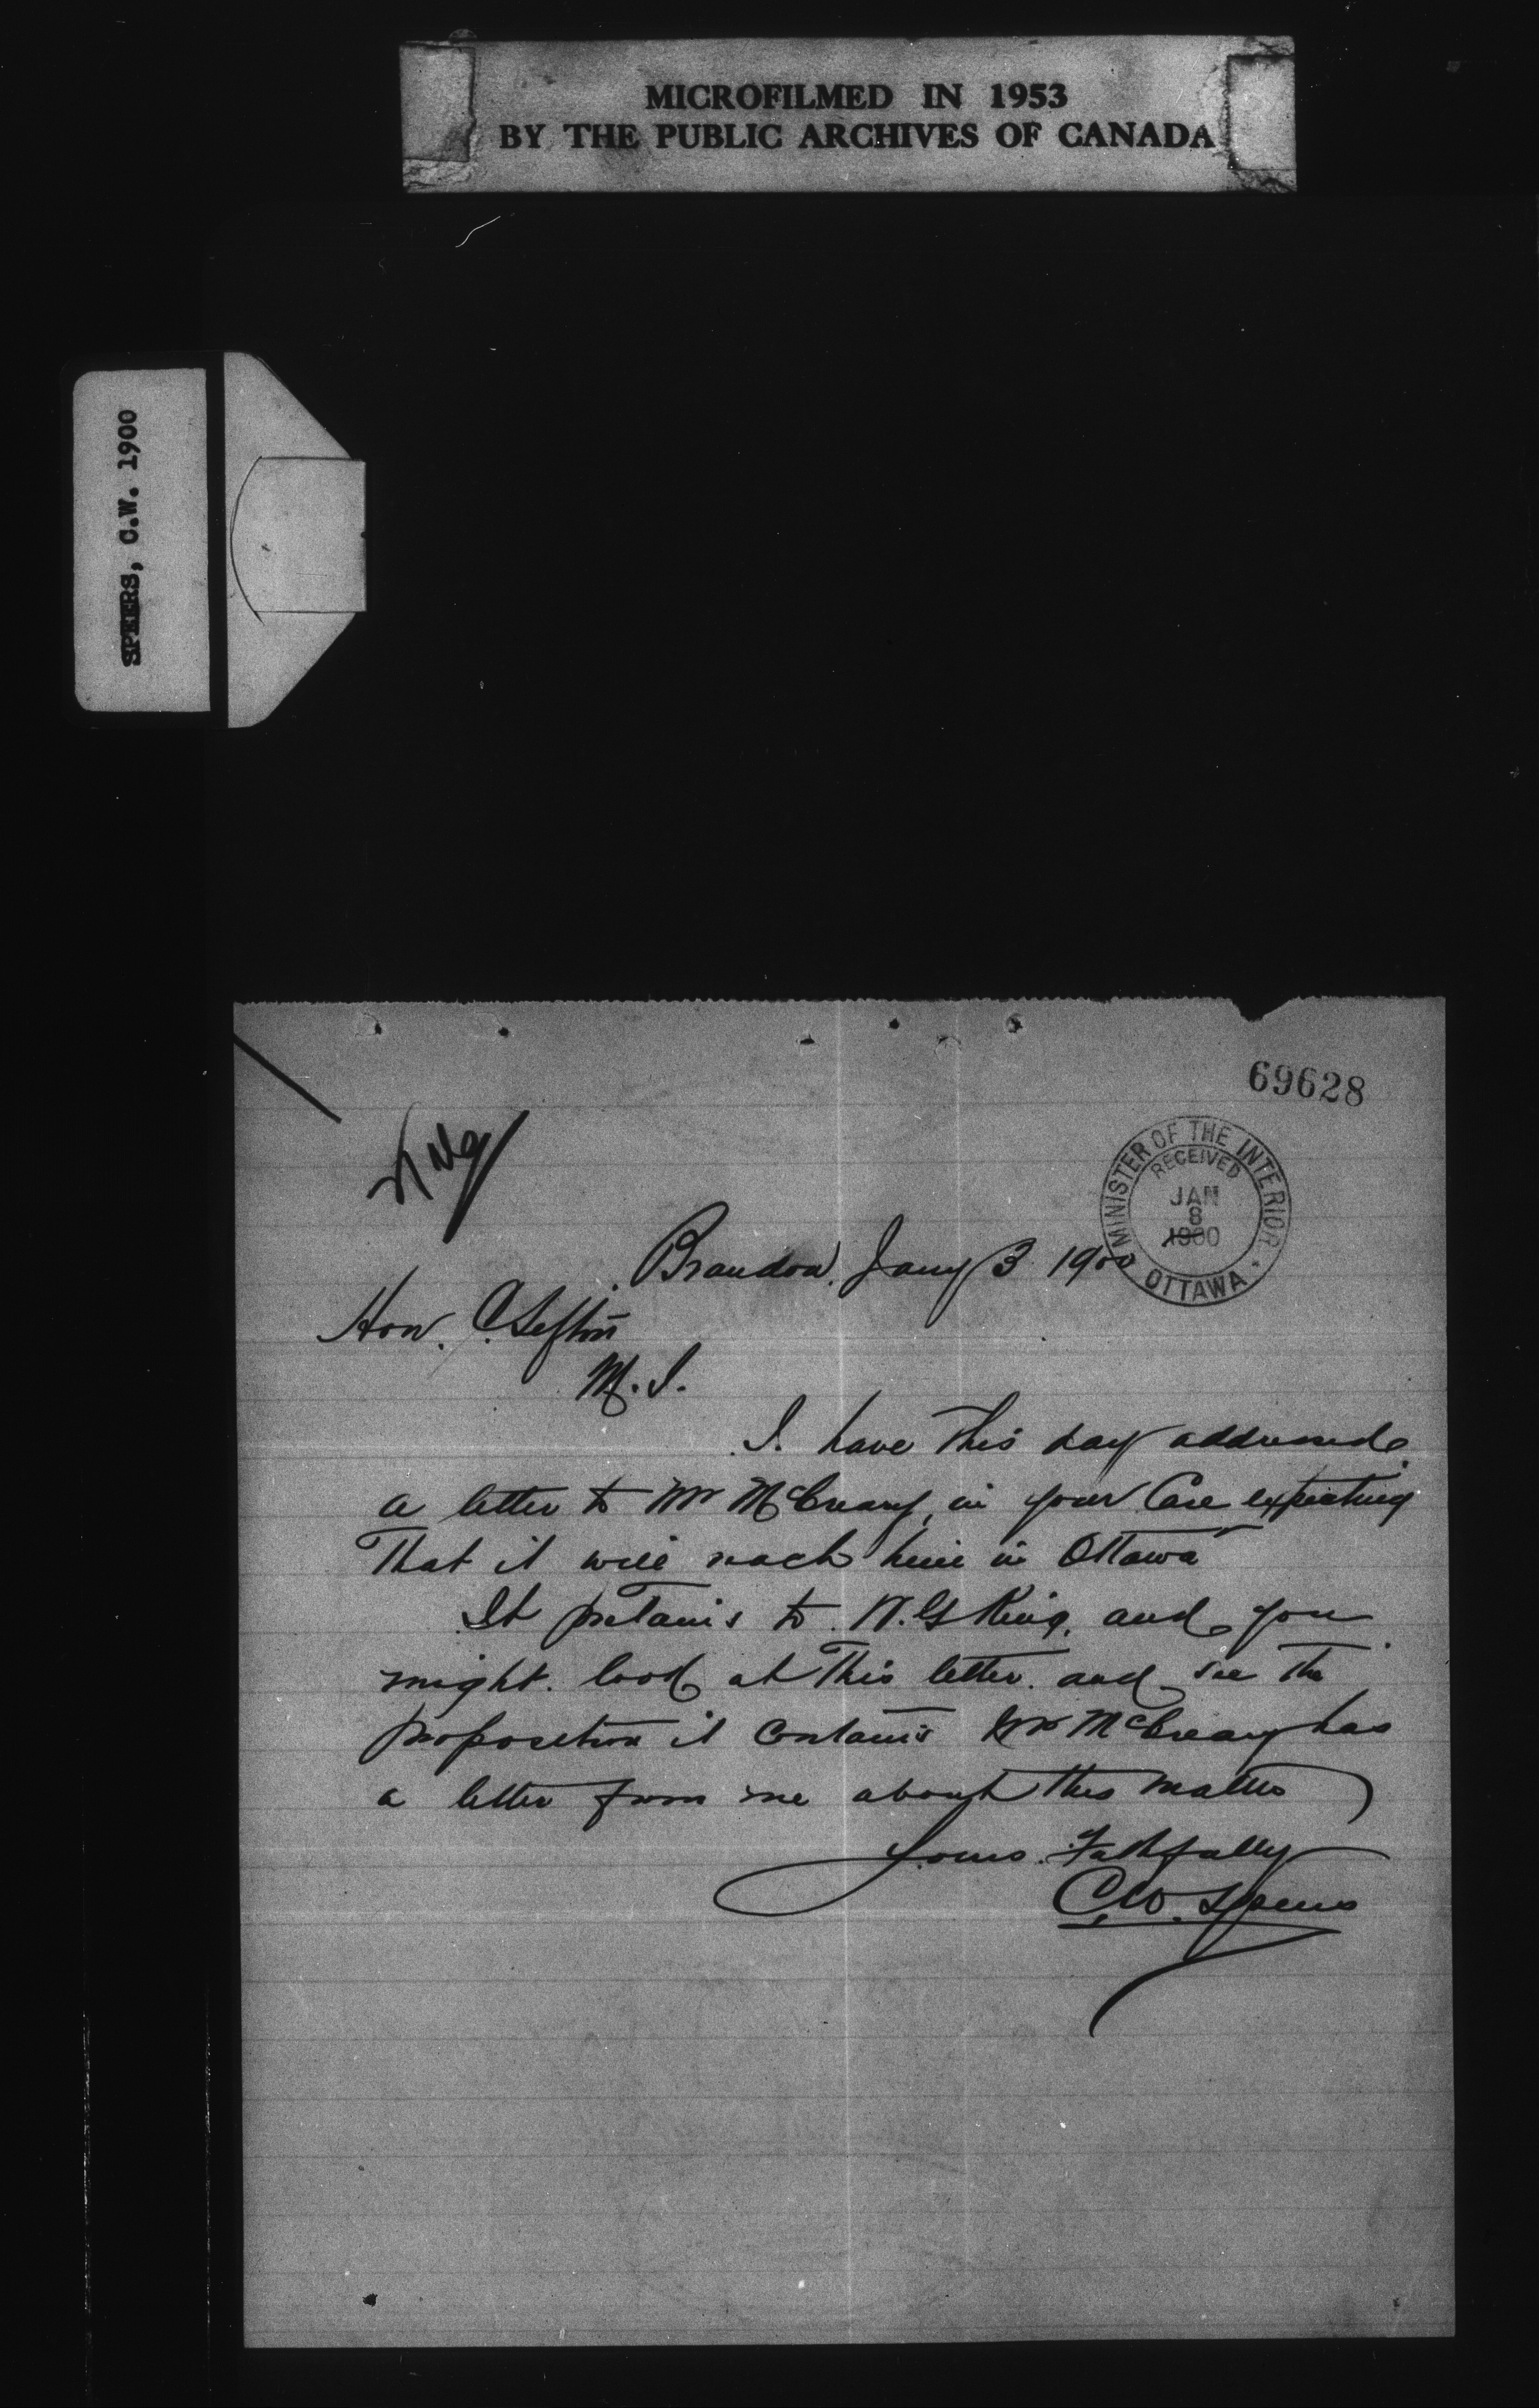 MICROFILMED IN 1953
BY THE PUBLIC ARCHIVES OF CANADA
SPEERS, C.W. 1900
69628
MINISTER OF THE INTERIOR
RECEIVED
JAN
8
1900
OTTAWA
Brandon, Jany 3 1900
Hon. C. Sifton
M.I.
I have this day addressed
a letter to Mr McCreary, in your Care expecting
That it will reach him in Ottawa
It pertains to W.G King, and you
might look at This letter and see The
proposition it Contains Mr McCreary has
a letter from me about this matter
Yours Faithfully
C.W. Speers